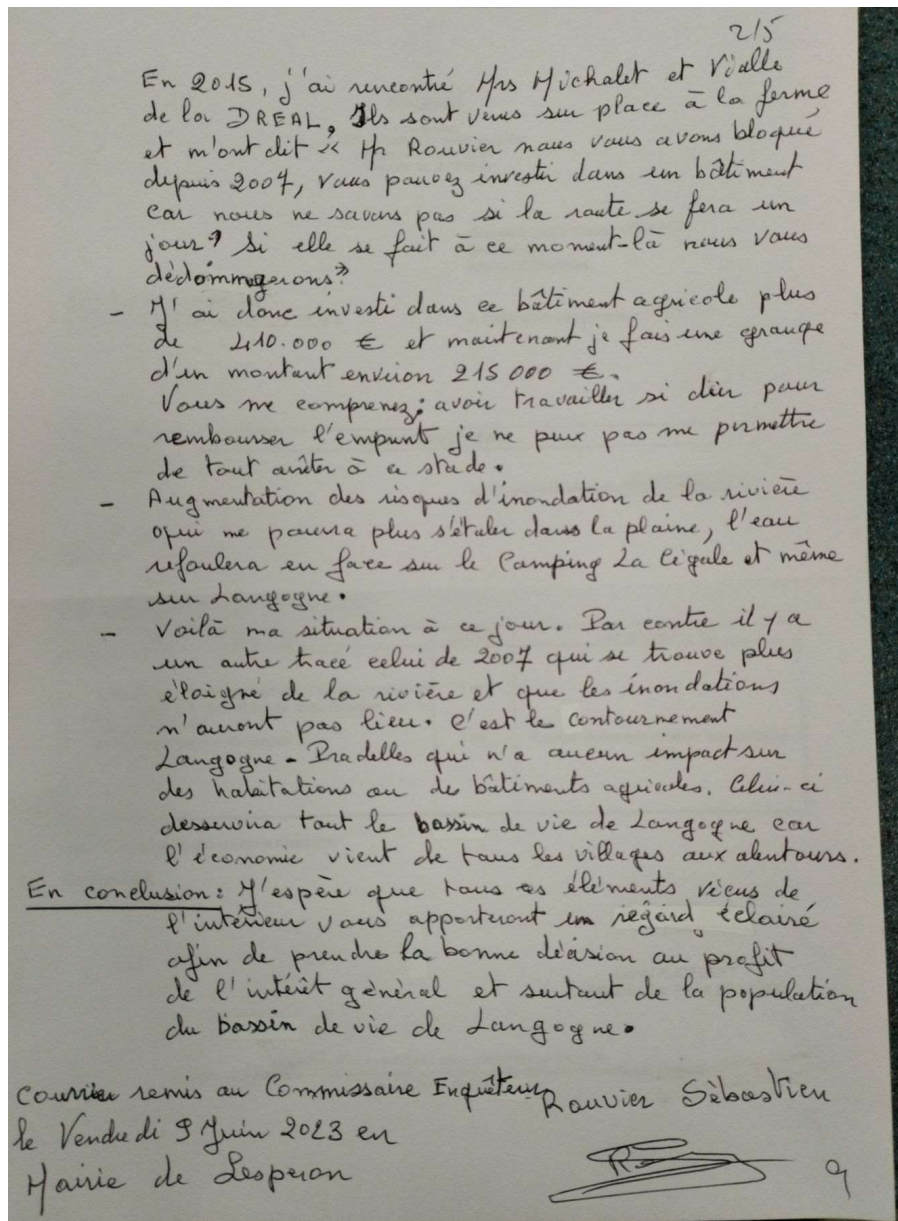 2/5
En 2015, j'ai rencontré Mrs Michalet et Vialle
de la DREAL, Ils sont venus sur place à la ferme
et m'ont dit « Mr Rouvier nous vous avons bloqué
depuis 2007, vous pouvez investir dans un bâtiment
car nous ne savons pas si la route se fera un
jour? Si elle se fait à ce moment-là nous vous
dédommgerons?»
- J'ai donc investi dans ce bâtiment agricole plus
de 410.000 € et maintenant je fais une grange
d'un montant environ 215 000 €.
Vous me comprenez; avoir travailler si dur pour
rembourser l'empunt je ne peux pas me permettre
de tout arrêter à ce stade.
- Augmentation des risques d'inondation de la rivière
qui ne pourra plus s'étaler dans la plaine, l'eau
refoulera en face sur le Camping La Cigale et même
sur Langogne.
- Voilà ma situation à ce jour. Par contre il y a
un autre tracé celui de 2007 qui se trouve plus
éloigné de la rivière et que les inondations
n'auront pas lieu. C'est le contournement
Langogne - Pradelles qui n'a aucun impact sur
des habitations ou de bâtiments agricoles. Celui-ci
desservira tout le bassin de vie de Langogne car
l'économie vient de tous les villages aux alentours.
En conclusion: J'espère que tous ces éléments vécus de
l'intérieur vous apporteront un regard éclairé
afin de prendre la bonne décision au profit
de l'intérêt général et surtout de la population
du bassin de vie de Langogne.
Courrier remis au Commissaire Enquêteur Rouvier Sébastien
le Vendredi 9 Juin 2023 en
Mairie de Lesperon
9